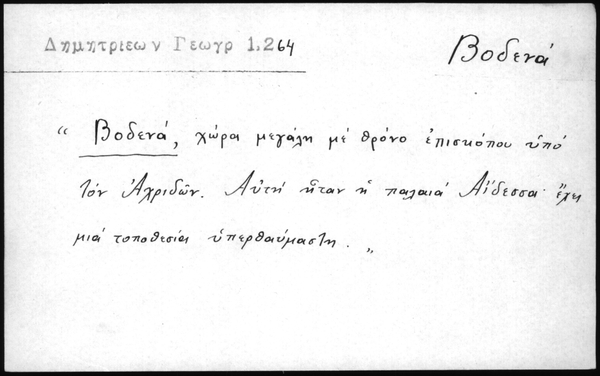 Δημητριεων Γεωγρ 1.264
Βοδενά
“ Βοδενά, χώρα μεγάλη μέ θρόνο ἐπισκόπου ὑπό
τόν Ἀχριδῶν. Αὐτή ἦταν ἡ παλαιά Αἴδεσσα· ἔχει
μιά τοποθεσία ὑπερθαύμαστη. „